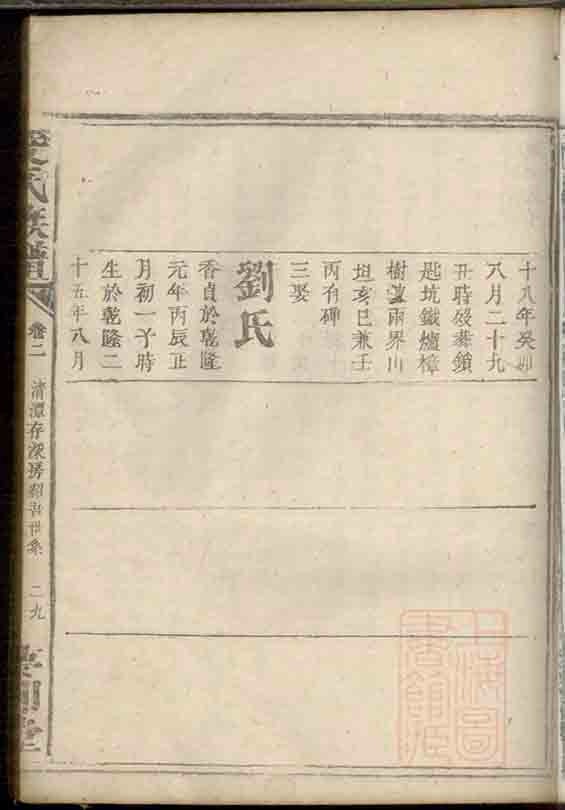 十八年癸卯
八月二十九
丑時歿葬鎖
匙坑鐵爐樟
樹窩兩界山
坦亥巳兼壬
丙有碑
三娶
劉氏
香貞於乾隆
元年丙辰正
月初一子時
生於乾隆二
十五年八月
氏族譜
卷二
清潭存深房
世系
二九
上海圖
書館藏